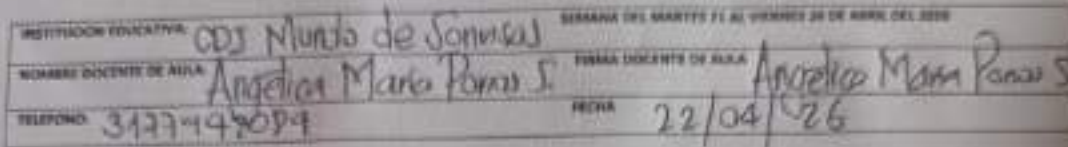 INSTITUCION EDUCATIVA CDI Mundo de Sonrisas SEMANA DEL MARTES 21 AL VIERNES 24 DE ABRIL DEL 2026
NOMBRE DOCENTE DE AULA Angelica Maria S. FIRMA DOCENTE DE AULA Angelica Maria S
TELEFONO FECHA 22/04/26